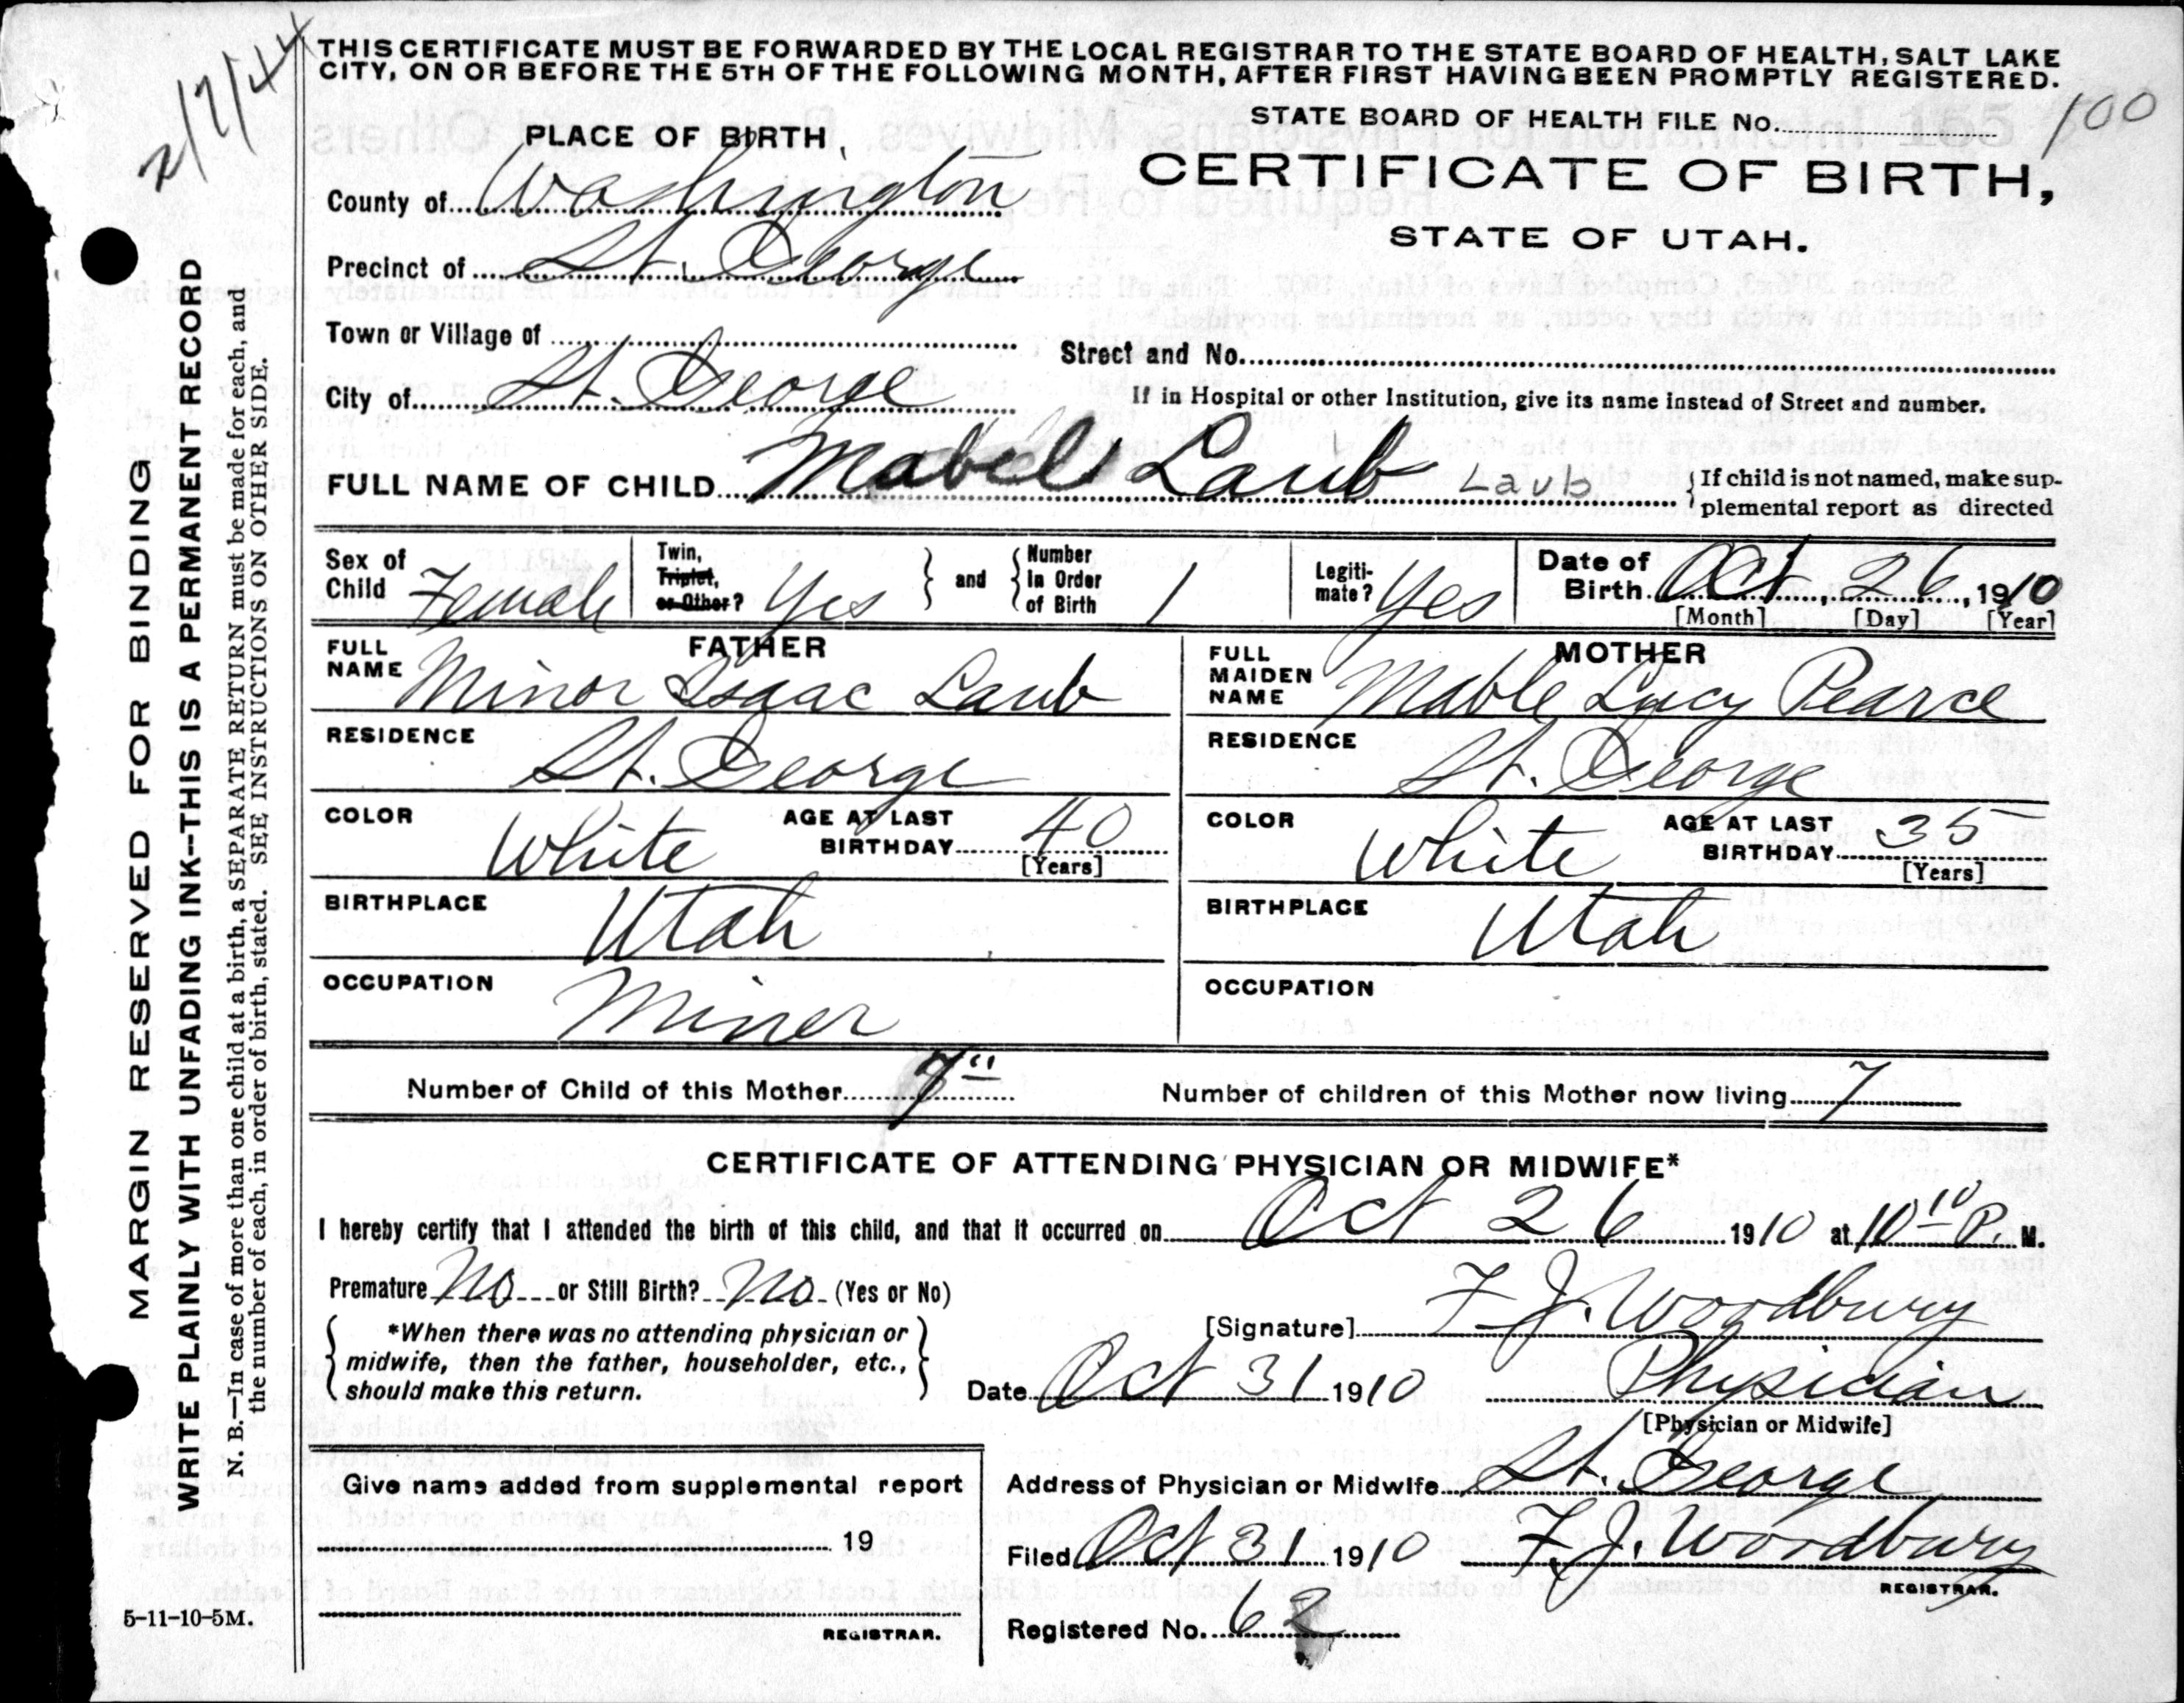 2/7/44
THIS CERTIFICATE MUST BE FORWARDED BY THE LOCAL REGISTRAR TO THE STATE BOARD OF HEALTH, SALT LAKE
CITY, ON OR BEFORE THE 5TH OF THE FOLLOWING MONTH, AFTER FIRST HAVING BEEN PROMPTLY REGISTERED.
STATE BOARD OF HEALTH FILE No. 100
PLACE OF BIRTH
CERTIFICATE OF BIRTH,
STATE OF UTAH.
County of Washington
Precinct of St. George
Town or Village of
Street and No.
City of St. George
If in Hospital or other Institution, give its name instead of Street and number.
FULL NAME OF CHILD Mabel Laub Laub
{ If child is not named, make sup-
plemental report as directed
Sex of Child Female
Twin, Triplet, or Other? Yes
and Number In Order of Birth 1
Legiti-mate? Yes
Date of Birth Oct, 26, 1910
[Month] [Day] [Year]
FATHER
FULL NAME Minor Isaac Laub
RESIDENCE St. George
COLOR White AGE AT LAST BIRTHDAY 40 [Years]
BIRTHPLACE Utah
OCCUPATION Miner
MOTHER
FULL MAIDEN NAME Mable Lucy Pearce
RESIDENCE St. George
COLOR White AGE AT LAST BIRTHDAY 35 [Years]
BIRTHPLACE Utah
OCCUPATION
Number of Child of this Mother
Number of children of this Mother now living 7
CERTIFICATE OF ATTENDING PHYSICIAN OR MIDWIFE*
I hereby certify that I attended the birth of this child, and that it occurred on Oct 26 1910 at 10 10 P. M.
Premature No or Still Birth? No (Yes or No)
{ *When there was no attending physician or
midwife, then the father, householder, etc.,
should make this return. }
[Signature] F. J. Woodbury
Date Oct 31 1910 Physician
[Physician or Midwife]
Give name added from supplemental report
19
REGISTRAR.
Address of Physician or Midwife St. George
Filed Oct 31 1910 F. J. Woodbury
REGISTRAR.
Registered No. 62
5-11-10-5M.
MARGIN RESERVED FOR BINDING
WRITE PLAINLY WITH UNFADING INK--THIS IS A PERMANENT RECORD
N. B.—In case of more than one child at a birth, a SEPARATE RETURN must be made for each, and
the number of each, in order of birth, stated. SEE INSTRUCTIONS ON OTHER SIDE.